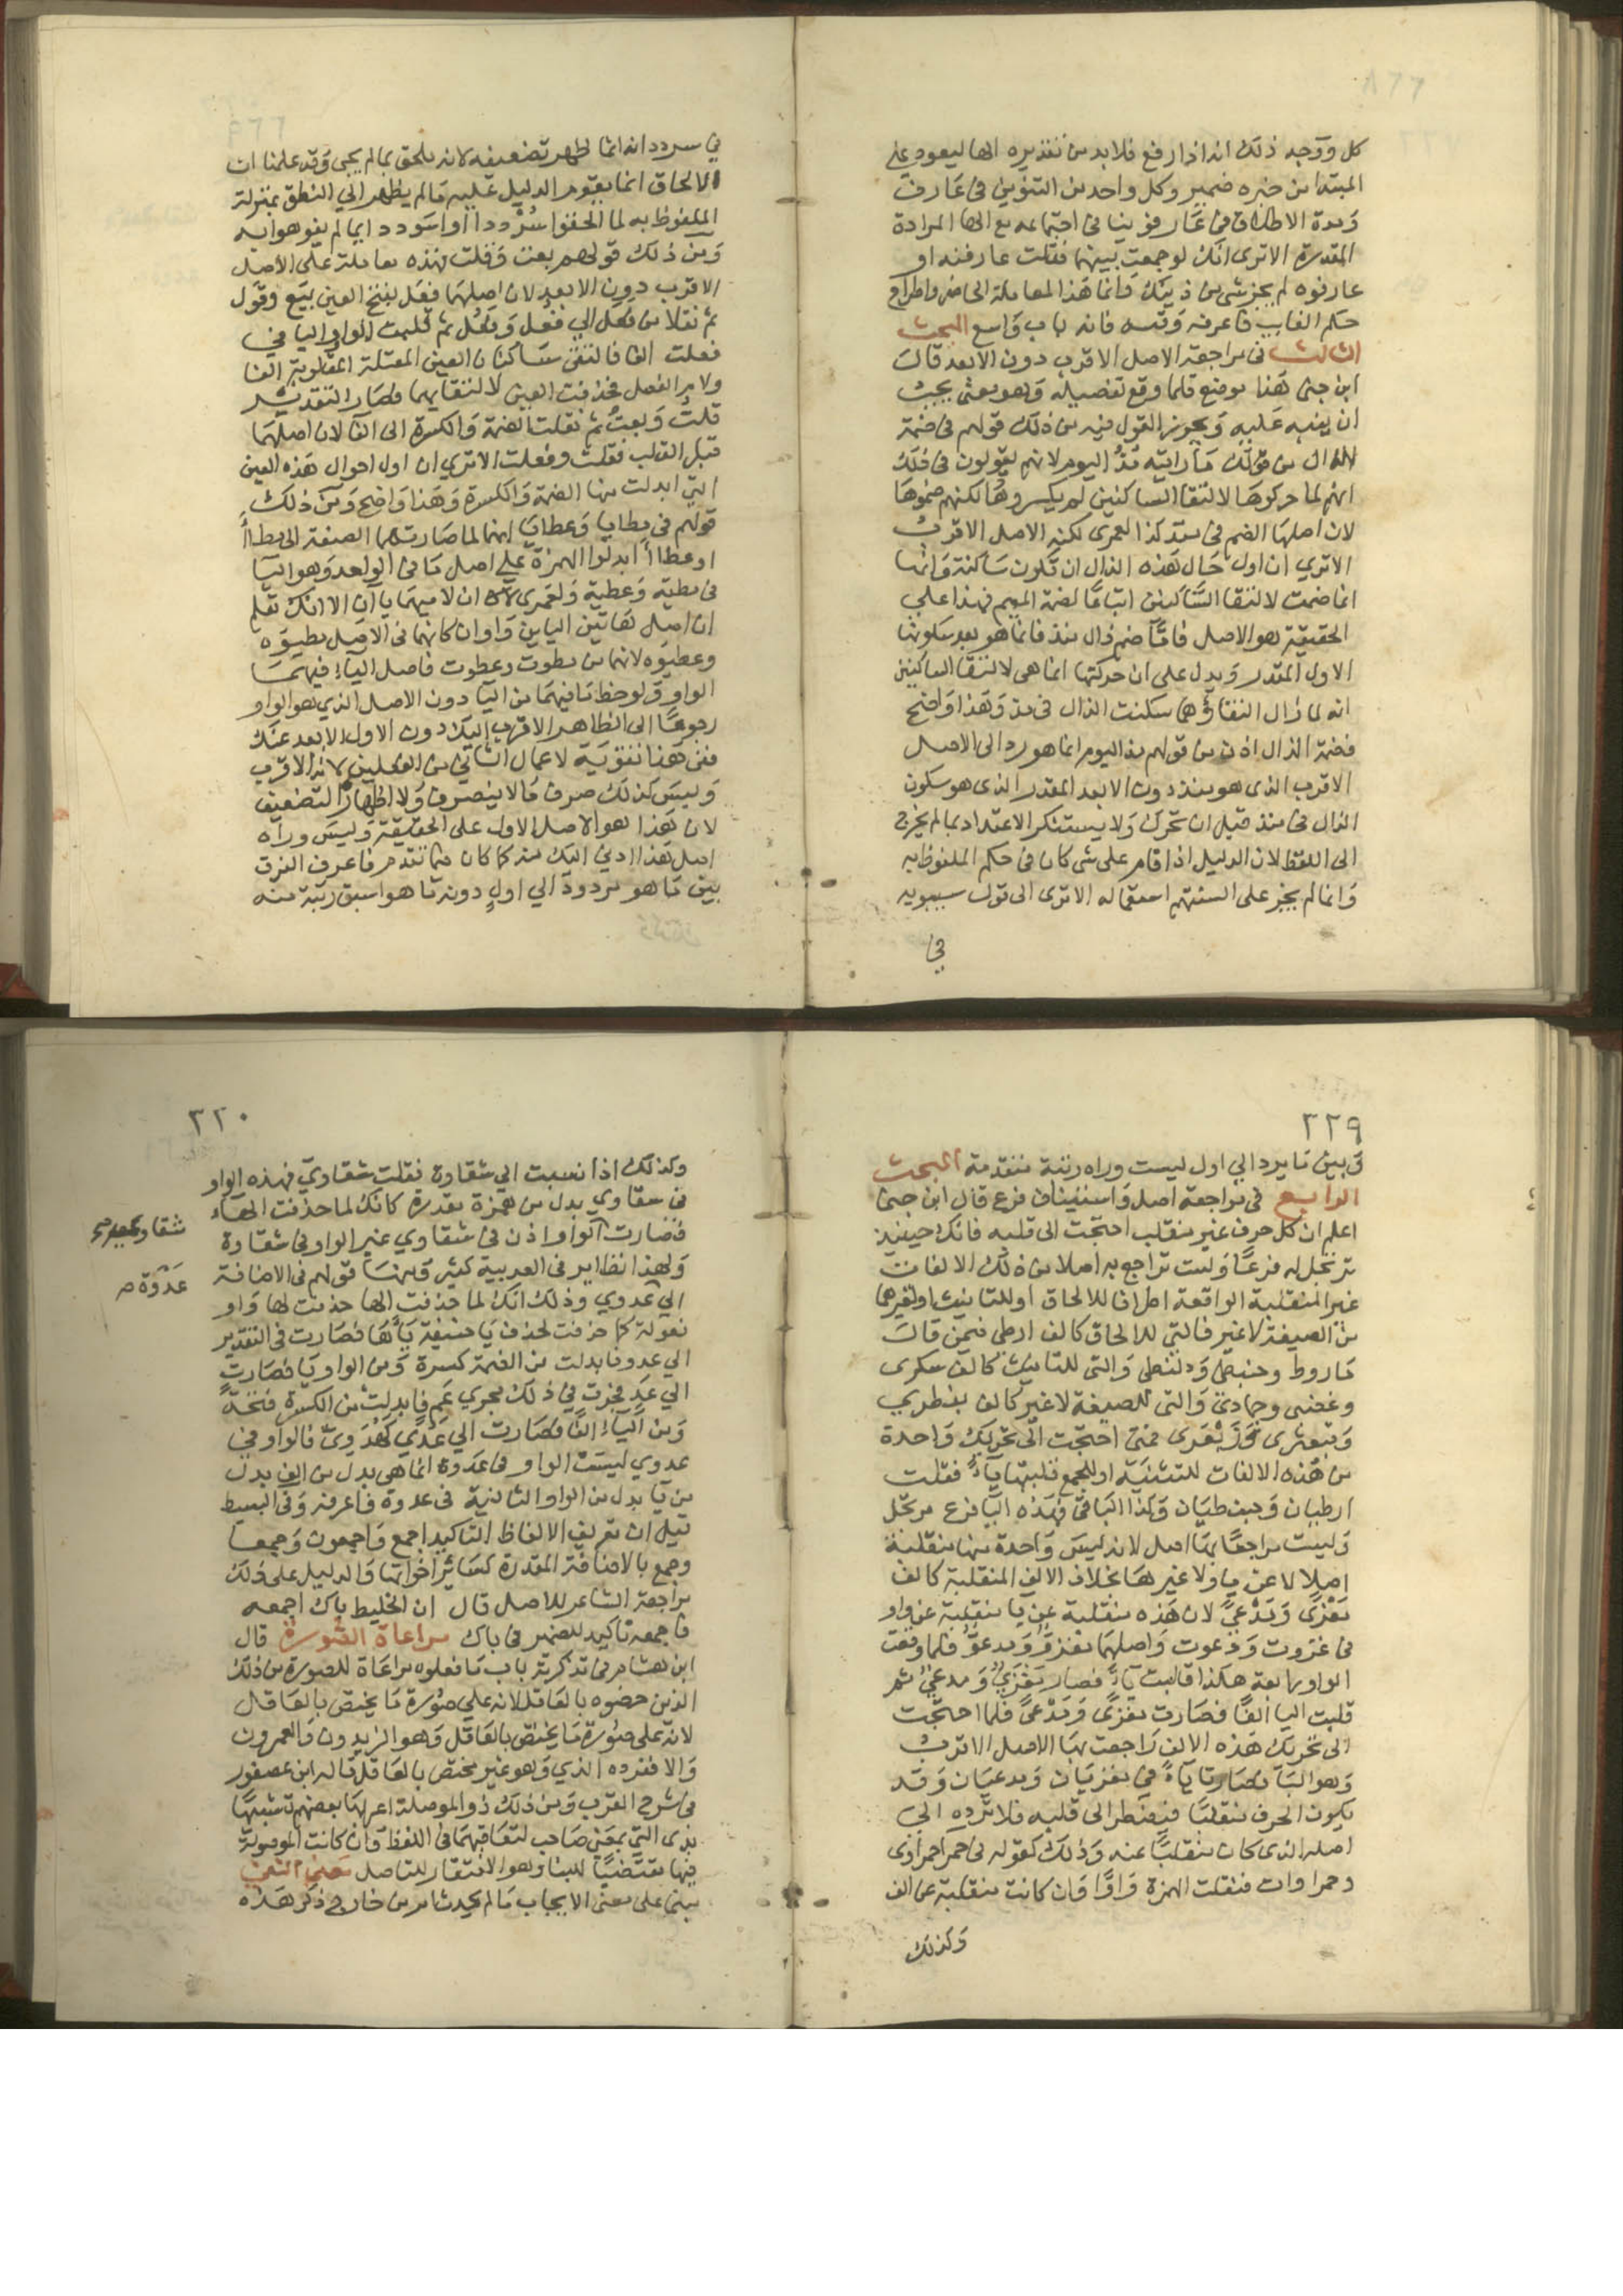 كل ووجه ذلك انه اذا رفع فلابد من تقديره الها ليعود علي
المبتدا من خبره ضمير وكل واحد من التنوين في عارف
ومدة الاطلاق في عارفو ينافي اجتماعه مع الها المرادة
المقدرة الا ترى انك لو جمعت بينهما فقلت عارفنه او
عارفوه لم يجز شي من ذينك وانما هذا لمعاملة الحاضر واطراح
حكم الغايب فاعرفه وقسه فانه باب واسع البحث
الثالث في مراجعة الاصل الاقرب دون الابعد قال
ابن جنى هذا موضع قلما وقع تفصيله وهو معنى يجب
ان ينبه عليه ويحرر القول فيه من ذلك قولهم في ضمة
الذال من قولك ما رايته مذ اليوم لانهم يقولون في ذلك
انهم لما حركوها لالتقا الساكنين لم يكسروها لكنهم ضموها
لان اصلها الضم في منذ كذا لعمرى لكنه الاصل الاقرب
الا تري ان اول حال هذه الذال ان تكون ساكنة وانها
انما ضمت لالتقا الساكنين اتباعا لضمة الميم فهذا علي
الحقيقة هو الاصل فاما ضم ذال منذ فانما هو بعد سكونها
الاول المقدر ويدل على ان حركتها انما هي لالتقا الساكنين
انه لما زال التقاؤهما سكنت الذال في مذ وهذا واضح
فضمة الذال اذن من قولهم مذ اليوم انما هو رد الى الاصل
الاقرب الذى هو منذ دون الابعد المقدر الذى هو سكون
الذال في منذ قبل ان تحرك ولا يستنكر الاعتداد بما لم يخرج
الى اللفظ لان الدليل اذا قام على شي كان في حكم الملفوظ به
وانما لم يجز على السنتهم استعماله الا ترى الى قول سيبويه
في
في سردد انه انما ظهر تضعيفه لانه ملحق بما لم يجي وقد علمنا ان
الالحاق انما يقوم الدليل عليه ما لم يظهر الي النطق بمنزلة
الملفوظ به لما الحقوا سرددا او اسوددا بما لم يفوهوا به
ومن ذلك قولهم بعت وقلت فهذه معاملة على الاصل
الاقرب دون الابعد لان اصلهما فعل بفتح العين بيع وقول
ثم نقلا من فعل الي فعل وفعل ثم قلبت الواو واليا في
فعلت الفا فالتقى ساكنان العين المعتلة المقلوبة الفا
ولام الفعل فحذفت العين لالتقايهما فصار التقدير
قلت وبعت ثم نقلت الضمة والكسرة الى الفا لان اصلهما
قبل القلب فعلت وفعلت الا تري ان اول احوال هذه العين
التي ابدلت منها الضمة والكسرة وهذا واضح ومن ذلك
قولهم في مطايا وعطايا انهما لما صارت بهما الصنعة الى مطاأ
او عطاأ ابدلوا الهمزة علي اصل ما في الواحد وهو اليا
في مطية وعطية ولعمرى ان لاميهما يا آن الا انك تعلم
ان اصل هاتين الياين واوان كانهما في الاصل مطيوه
وعطيوه لانهما من مطوت وعطوت فاصل الياء فيهما
الواو ولو حظ ما فيهما من اليا دون الاصل الذي هو الواو
رجوعا الى الظاهر الاقرب اليك دون الاول الابعد عنك
ففي هذا تقوية لاعمال الثاني من الفعلين لانه الاقرب
وليس كذلك صرف ما لا ينصرف ولا اظهار التضعيف
لان هذا هو الاصل الاول على الحقيقة وليس وراه
اصل هذا ادني اليك منه كما كان فيما تقدم فاعرف الفرق
بين ما هو مردود الي اول دونه ما هو اسبق رتبة منه
٢٢٩
وبين ما يرد الي اول ليست وراه رتبة متقدمة البحث
الرابع في مراجعة اصل واستيناف فرع قال ابن جنى
اعلم ان كل حرف غير منقلب احتجت الى قلبه فانك حينيذ
ترتجل له فرعا ولست تراجع به اصلا من ذلك الالفات
غير المنقلبة الواقعة اطرافا للالحاق او للتانيث او لغيرهما
من الصيغة لا غير فالتي للالحاق كالف ارطى فيمن قال
ماروط وحبنطى ودلنظى والتى للتانيث كالف سكرى
وغضبى وجمادى والتى للصيغة لا غير كالف ضبغطري
وقبعثرى وزبعرى فمتى احتجت الى تحريك واحدة
من هذه الالفات للتثنية او للجمع قلبتها ياء فقلت
ارطيان وحبنطيان وكذا الباقي فهذه اليا فرع مرتجل
وليست مراجعا بها اصل لانه ليس واحدة منها منقلبة
اصلا لا عن يا ولا غيرها بخلاف الالف المنقلبة كالف
مغزى ومدعى لان هذه منقلبة عن يا منقلبة عن واو
في غزوت ودعوت واصلهما مغزو ومدعو فلما وقعت
الواو رابعة هكذا قلبت ياء فصار مغزي ومدعي ثم
قلبت اليا الفا فصارت مغزى ومدعى فلما احتجت
الى تحريك هذه الالف راجعت بها الاصل الاقرب
وهو اليا فصارتا ياء في مغزيان ومدعيان وقد
يكون الحرف منقلبا فيضطر الى قلبه فلا ترده الى
اصله الذى كان منقلبا عنه وذلك كقوله في حمرا حمراوى
وحمراوات فتقلب الهمزة واوا وان كانت منقلبة عن الف
وكذلك
٢٣٠
وكذلك اذا نسبت الي شقاوة فقلت شقاوي فهذه الواو
في شقاوي بدل من همزة مقدرة كانك لما حذفت الهاء
فصارت الواو اذن في شقاوي غير الواو في شقاوة
ولهذا نظاير في العربية كثيرة ومنها قولهم في الاضافة
الي عدوي وذلك انك لما حذفت الها حذفت لها واو
فعولة كما حذفت لحذف يا حنيفة ياها فصارت في التقدير
الي عدو فابدلت من الضمة كسرة ومن الواو يا فصارت
الي عد فجرت في ذلك مجري عم فابدلت من الكسرة فتحة
ومن الياء الفا فصارت الي عدي كهدوي فالواو في
عدوي ليست الواو في عدوة انما هى بدل من الف بدل
من يا بدل من الواو الثانية في عدوة فاعرفه وفي البسيط
قيل ان تعريف الالفاظ التاكيد اجمع واجمعون وجمعا
وجمع بالاضافة المقدرة كساير اخواتها والدليل على ذلك
مراجعة الشاعر للاصل قال ان الخليط باك اجمعه
فاجمعه تاكيد للضمير في باك مراعاة الصورة قال
ابن هشام في تذكرته باب ما فعلوه مراعاة للصورة من ذلك
الذين خصوه بالعاقل لانه علي صورة ما يختص بالعاقل
لانه على صورة ما يختص بالعاقل وهو الزيدون والعمرون
والا فمفرده الذي وهو غير مختص بالعاقل قاله ابن عصفور
في شرح المقرب ومن ذلك ذو الموصلة اعربها بعضهم تشبيها
بذى التي بمعنى صاحب لتعاقبهما في اللفظ وان كانت الموصولة
فيها مقتضيا للبنا وهو الافتقار للتاصل معنى النفى
مبنى على معنى الايجاب ما لم يحدث امر من خارج ذكر هذه
عدوة صح